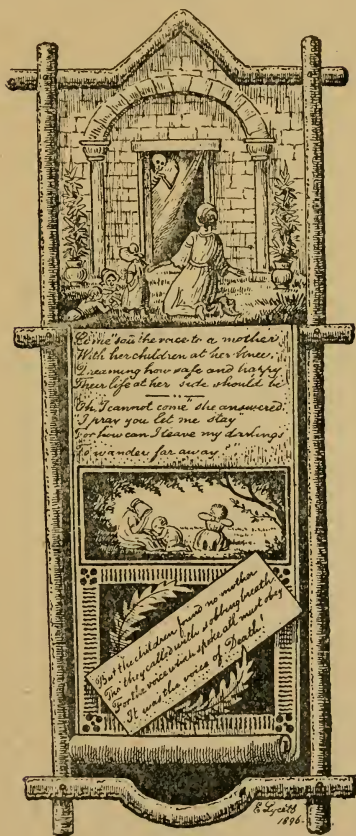 "Come" saith the voice to a mother
With her children at her knee,
Dreaming how safe and happy
Their life at her side should be
"Oh, I cannot come" she answered,
"I pray you let me stay"
For how can I leave my darlings
To wander far away."
But the children found no mother
Tho' they called with sobbing breath
For the voice which spoke all must obey
It was the voice of Death!
E Lycett
1896.